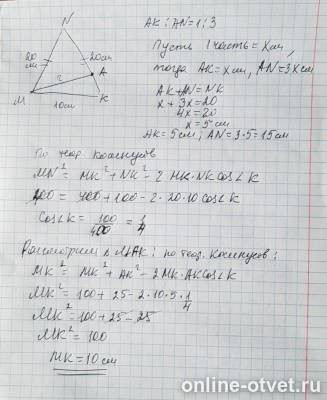 N
20 см
20см
?
A
M
10см
K
AK : AN = 1 : 3
Пусть 1 часть = x см,
тогда AK = x см, AN = 3x см
AK + AN = NK
x + 3x = 20
4x = 20
x = 5 см
AK = 5 см, AN = 3·5 = 15 см
По теор. Косинусов
MN² = MK² + NK² - 2 MK·NK cos∠K
400 = 400 + 100 - 2·20·10 cos∠K
Cos∠K = 100/400 = 1/4
Рассмотрим △ MAK: по теор. Косинусов:
MK² = MK² + AK² - 2MK·AK cos∠K
MK² = 100 + 25 - 2·10·5·1/4
MK² = 100 + 25 - 25
MK² = 100
MK = 10 см
online-otvet.ru